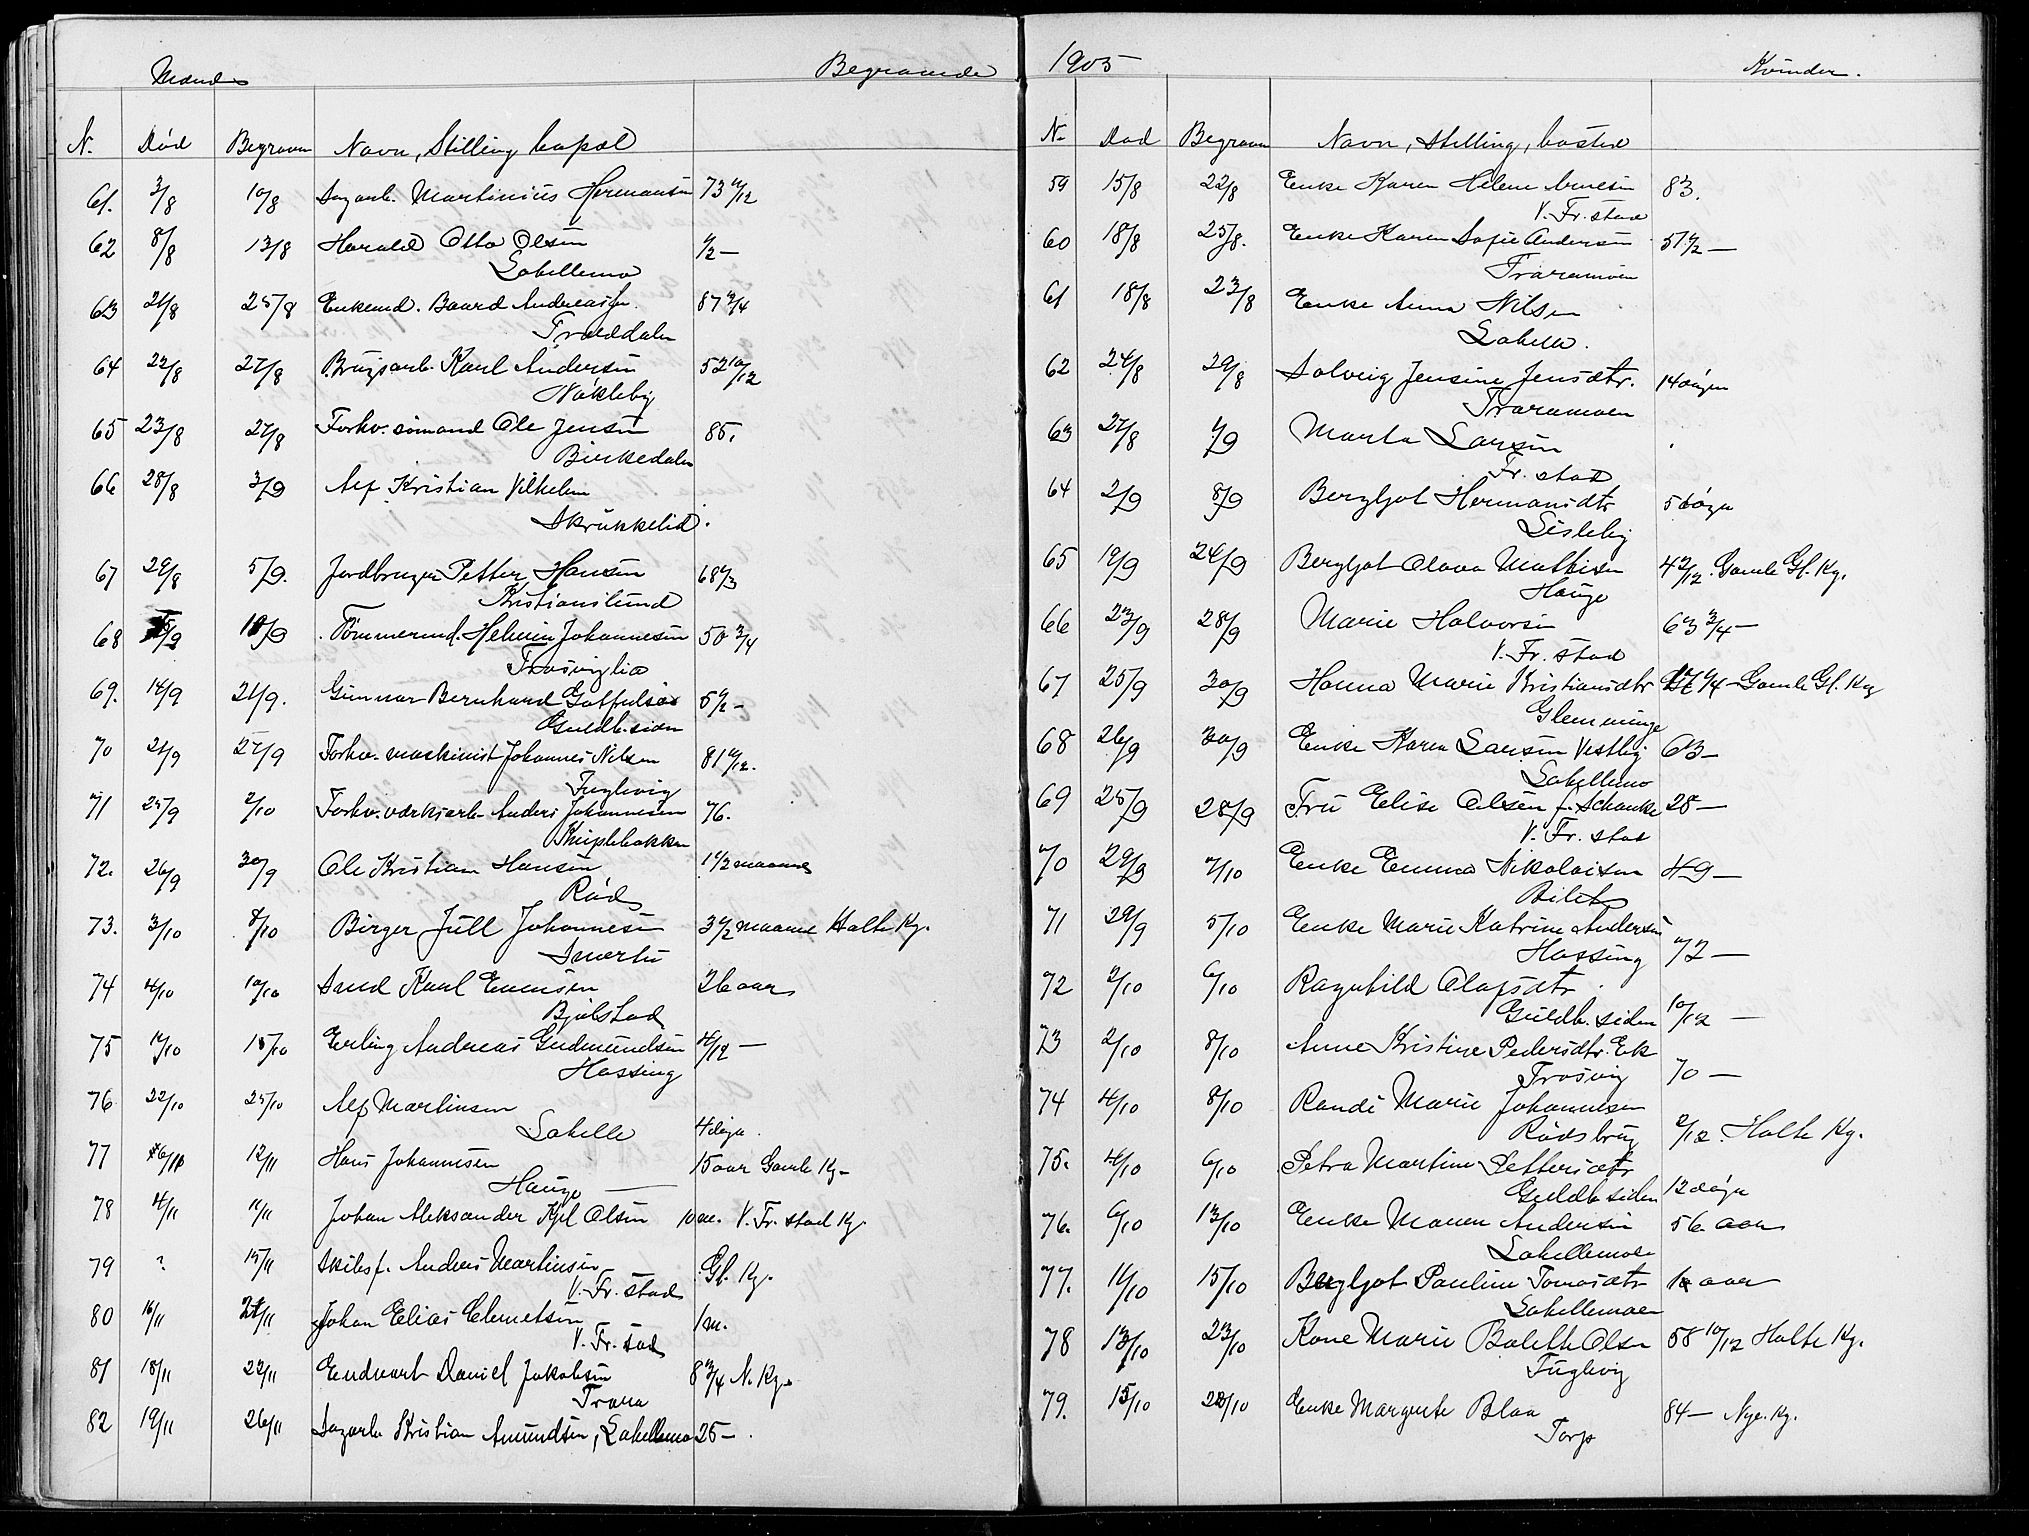 Mænd
Begravede
N. Død Begraven Navn, Stilling bopæl
61. 3/8 10/8 Sagarb. Martinius Hermansen 73 11/12
62 8/8 13/8 Harald Otto Olsen 1/2 —
Lakellemo
63 21/8 25/8 Enkemd. Baard Andreasen. 87 3/4
Træddalen
64 22/8 27/8 Brugsarb. Karl Andersen 52 10/12
Nøkleby
65 23/8 27/8 Forhv. sømand Ole Jensen 85.
Birkedalen
66 28/8 3/9 Alf Kristian Vilhelm
Skrukkelid.
67 29/8 5/9. Jordbruger Petter Hansen 68 1/3
Kristianslund
68 10/9 Tømmermd. Helmin Johannesen 50 3/4
Trosviglia
69. 14/9 21/9. Gunnar Bernhard 5 1/2 —
Guldb. siden
70 21/9 27/9 Forhv. maskinist Johannes Nilsen 81 11/12.
Fuglevig
71 25/9 2/10 Forhv. værksarb. Anders Johannesen 76.
Kniplebakken
72. 26/9 30/9 Ole Kristian Hansen 1 1/2 maaned
Rød
73. 3/10 8/10 Birger Jull Johannesen 3 1/2 maaned Halte Kg.
Smertu
74 4/10 10/10 Smed Karl Evensen 26 aar
Bjølstad
75 10/10 15/10 Erling Andreas Gudmundsen 4/12 —
Hassing
76 22/10 25/10 Alf Martinsen
Lakelle 4 døgn.
77 12/11 Hans Johannesen 15 aar Gamle Kg —
Hauge
78 4/11 11/11 Johan Aleksander Kjel Olsen 10 m. V. Fr. stad Kg.
79 ? 15/11 Skibsf. Anders Martinsen Gl. Kg.
V. Fr. stad
80 16/11 21/11 Johan Elias Clemetsen 1 m.
V. Fr. stad
81 18/11 22/11 Endvart Daniel Jakobsen 8 3/4 N. Kg.
Trara
82 19/11 26/11 Sagarb. Kristian Amundsen, Lakellemo 25 —
1905
Kvinder.
N. Død Begraven Navn, Stilling, bosted
59 15/8 22/8 Enke Karen Helene Arnesen 83.
V. Fr. stad
60 18/8 25/8. Enke Karen Sofie Andersen 51 1/2 —
Traramoen
61 18/8 23/8 Enke Anna Nilsen
Lakelle.
62 24/8 29/8 Solveig Jensine Jensdtr. 14 døgn
Traramoen
63 27/8 1/9 Marta Larsen
Fr. stad
64 2/9 8/9 Bergljot Hermansdtr 5 døgn
Lisleby
65 19/9 24/9 Bergljot Olava Mathisen 4 2/12. Gamle Gl. Kg.
Hauge
66 23/9 28/9 Marie Halvorsen 63 3/4 —
V. Fr. stad
67 25/9 30/9 Hanna Marie Kristiansdtr 1/4 — Gamle Gl. Kg
Glemminge
68 26/9 30/9 Enke Karen Larsen Vestby 63 —
Lakellemo
69 25/9 28/9 Fru Elise Olsen f. Schanke 28 —
V. Fr. stad
70 29/9 7/10 Enke Emma Nikolaisen 49 —
Bilet
71 29/9 5/10 Enke Marie Katrine Andersen
Hassing 72 —
72 2/10 6/10 Ragnhild Olafsdtr
Guldb. siden 10/12 —
73 2/10 8/10 Anne Kristine Pedersdtr. Enk
Trosvig 70 —
74 4/10 8/10 Randi Marie Johannesen
Rødsbrug 2/12. Halte Kg.
75. 4/10 6/10 Petra Martine Pettersdtr
Guldb. siden 12 døgn
76. 6/10 13/10 Enke Maren Andersen 56 aar
Lakellemoen
77. 11/10 15/10 Bergljot Pauline Tomasdtr aar
Lakellemoen
78 13/10 23/10 Kone Marie Bolette Olsen 58 10/12 Halte Kg.
Fuglevig
79. 15/10 20/10 Enke Margrete Blaa 84 — Nye. Kg.
Torp